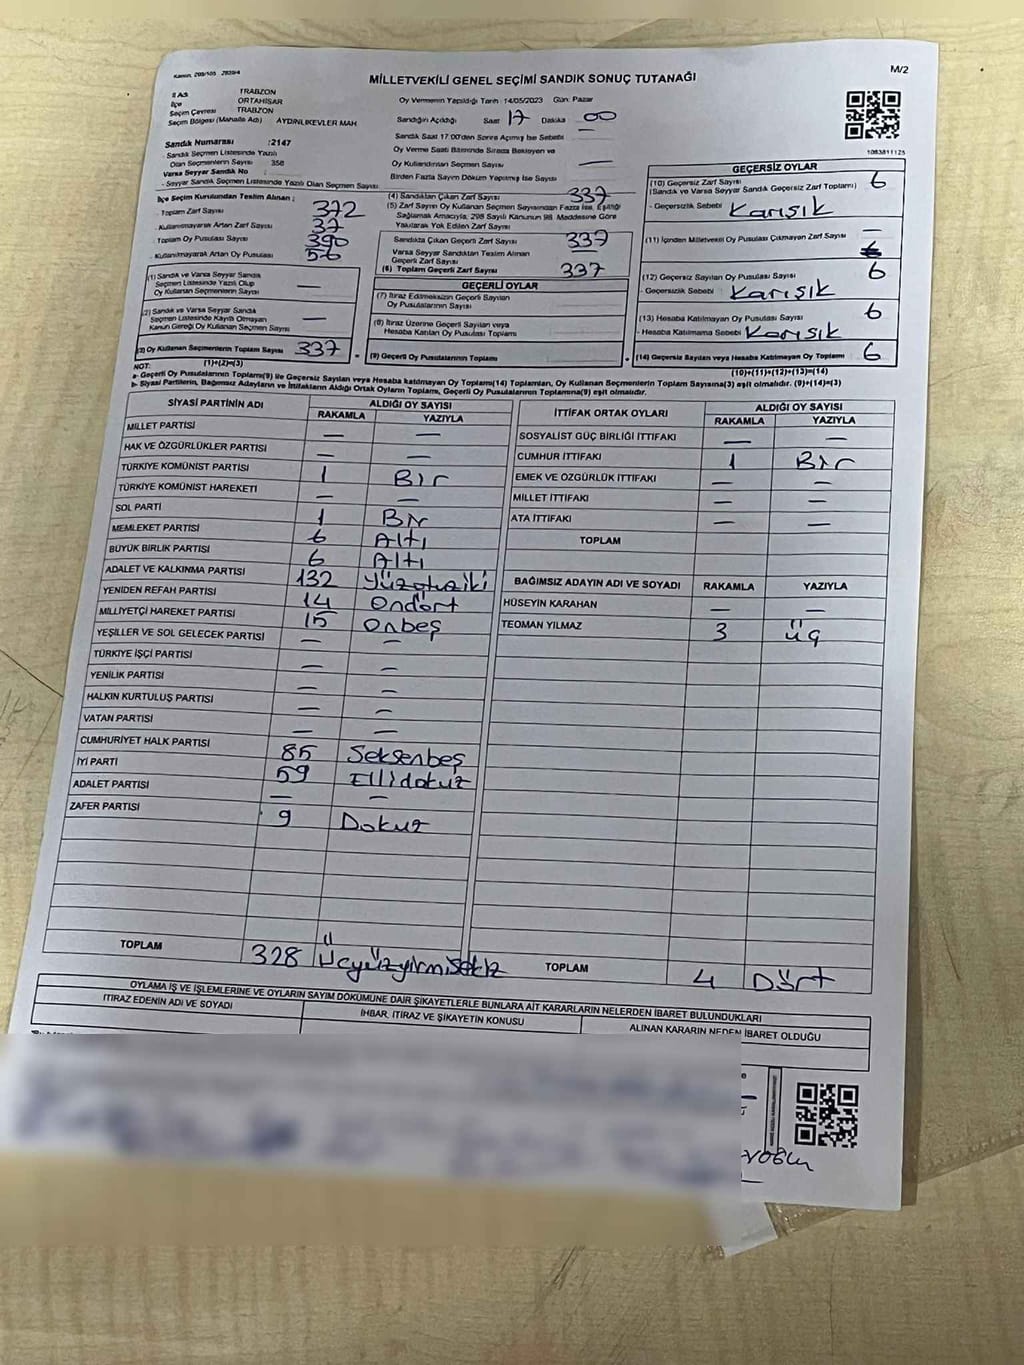 Kanun, 298/105 2839/4
MİLLETVEKİLİ GENEL SEÇİMİ SANDIK SONUÇ TUTANAĞI
M/2
İl Adı TRABZON
İlçe ORTAHİSAR
Seçim Çevresi TRABZON
Seçim Bölgesi (Mahalle Adı) AYDINLIKEVLER MAH.
Oy Vermenin Yapıldığı Tarih :14/05/2023 Gün: Pazar
Sandığın Açıldığı Saat 17 Dakika 00
Sandık Saat 17.00'den Sonra Açılmış İse Sebebi —
Oy Verme Saati Bitiminde Sırada Bekleyen ve
Oy Kullandırılan Seçmen Sayısı —
Birden Fazla Sayım Döküm Yapılmış İse Sayısı
1083811125
Sandık Numarası :2147
- Sandık Seçmen Listesinde Yazılı
Olan Seçmenlerin Sayısı 358
Varsa Seyyar Sandık No
- Seyyar Sandık Seçmen Listesinde Yazılı Olan Seçmen Sayısı
İlçe Seçim Kurulundan Teslim Alınan ;
- Toplam Zarf Sayısı 372
- Kullanılmayarak Artan Zarf Sayısı 37
- Toplam Oy Pusulası Sayısı 390
- Kullanılmayarak Artan Oy Pusulası 56
(1) Sandık ve Varsa Seyyar Sandık
Seçmen Listesinde Yazılı Olup
Oy Kullanan Seçmenlerin Sayısı —
(2) Sandık ve Varsa Seyyar Sandık
Seçmen Listesinde Kayıtlı Olmayan
Kanun Gereği Oy Kullanan Seçmen Sayısı —
(3) Oy Kullanan Seçmenlerin Toplam Sayısı 337
(1)+(2)=(3)
(4) Sandıktan Çıkan Zarf Sayısı 337
(5) Zarf Sayısı Oy Kullanan Seçmen Sayısından Fazla İse, Eşitliği
Sağlamak Amacıyla, 298 Sayılı Kanunun 98. Maddesine Göre
Yakılarak Yok Edilen Zarf Sayısı —
Sandıkta Çıkan Geçerli Zarf Sayısı 337
Varsa Seyyar Sandıktan Teslim Alınan
Geçerli Zarf Sayısı
(6) Toplam Geçerli Zarf Sayısı 337
GEÇERLİ OYLAR
(7) İtiraz Edilmeksizin Geçerli Sayılan
Oy Pusulalarının Sayısı
(8) İtiraz Üzerine Geçerli Sayılan veya
Hesaba Katılan Oy Pusulası Toplamı
(9) Geçerli Oy Pusulalarının Toplamı
GEÇERSİZ OYLAR
(10) Geçersiz Zarf Sayısı
(Sandık ve Varsa Seyyar Sandık Geçersiz Zarf Toplamı) 6
- Geçersizlik Sebebi Karışık
(11) İçinden Milletvekili Oy Pusulası Çıkmayan Zarf Sayısı —
(12) Geçersiz Sayılan Oy Pusulası Sayısı 6
- Geçersizlik Sebebi Karışık
(13) Hesaba Katılmayan Oy Pusulası Sayısı 6
- Hesaba Katılmama Sebebi Karışık
(14) Geçersiz Sayılan veya Hesaba Katılmayan Oy Toplamı 6
(10)+(11)+(12)+(13)=(14)
NOT:
a- Geçerli Oy Pusulalarının Toplamı(9) ile Geçersiz Sayılan veya Hesaba katılmayan Oy Toplamı(14) Toplamları, Oy Kullanan Seçmenlerin Toplam Sayısına(3) eşit olmalıdır. (9)+(14)=(3)
b- Siyasi Partilerin, Bağımsız Adayların ve İttifakların Aldığı Ortak Oyların Toplamı, Geçerli Oy Pusulalarının Toplamına(9) eşit olmalıdır.
SİYASİ PARTİNİN ADI ALDIĞI OY SAYISI
RAKAMLA YAZIYLA
MİLLET PARTİSİ — —
HAK VE ÖZGÜRLÜKLER PARTİSİ — —
TÜRKİYE KOMÜNİST PARTİSİ 1 Bir
TÜRKİYE KOMÜNİST HAREKETİ — —
SOL PARTİ 1 Bir
MEMLEKET PARTİSİ 6 Altı
BÜYÜK BİRLİK PARTİSİ 6 Altı
ADALET VE KALKINMA PARTİSİ 132 Yüzotuziki
YENİDEN REFAH PARTİSİ 14 Ondört
MİLLİYETÇİ HAREKET PARTİSİ 15 Onbeş
YEŞİLLER VE SOL GELECEK PARTİSİ — —
TÜRKİYE İŞÇİ PARTİSİ — —
YENİLİK PARTİSİ — —
HALKIN KURTULUŞ PARTİSİ — —
VATAN PARTİSİ — —
CUMHURİYET HALK PARTİSİ 85 Seksenbeş
İYİ PARTİ 59 Ellidokuz
ADALET PARTİSİ — —
ZAFER PARTİSİ 9 Dokuz
TOPLAM 328 Üçyüzyirmisekiz
İTTİFAK ORTAK OYLARI ALDIĞI OY SAYISI
RAKAMLA YAZIYLA
SOSYALİST GÜÇ BİRLİĞİ İTTİFAKI — —
CUMHUR İTTİFAKI 1 Bir
EMEK VE ÖZGÜRLÜK İTTİFAKI — —
MİLLET İTTİFAKI — —
ATA İTTİFAKI — —
TOPLAM
BAĞIMSIZ ADAYIN ADI VE SOYADI RAKAMLA YAZIYLA
HÜSEYİN KARAHAN — —
TEOMAN YILMAZ 3 üç
TOPLAM 4 Dört
OYLAMA İŞ VE İŞLEMLERİNE VE OYLARIN SAYIM DÖKÜMÜNE DAİR ŞİKAYETLERLE BUNLARA AİT KARARLARIN NELERDEN İBARET BULUNDUKLARI
İTİRAZ EDENİN ADI VE SOYADI
İHBAR, İTİRAZ VE ŞİKAYETİN KONUSU
ALINAN KARARIN NEDEN İBARET OLDUĞU